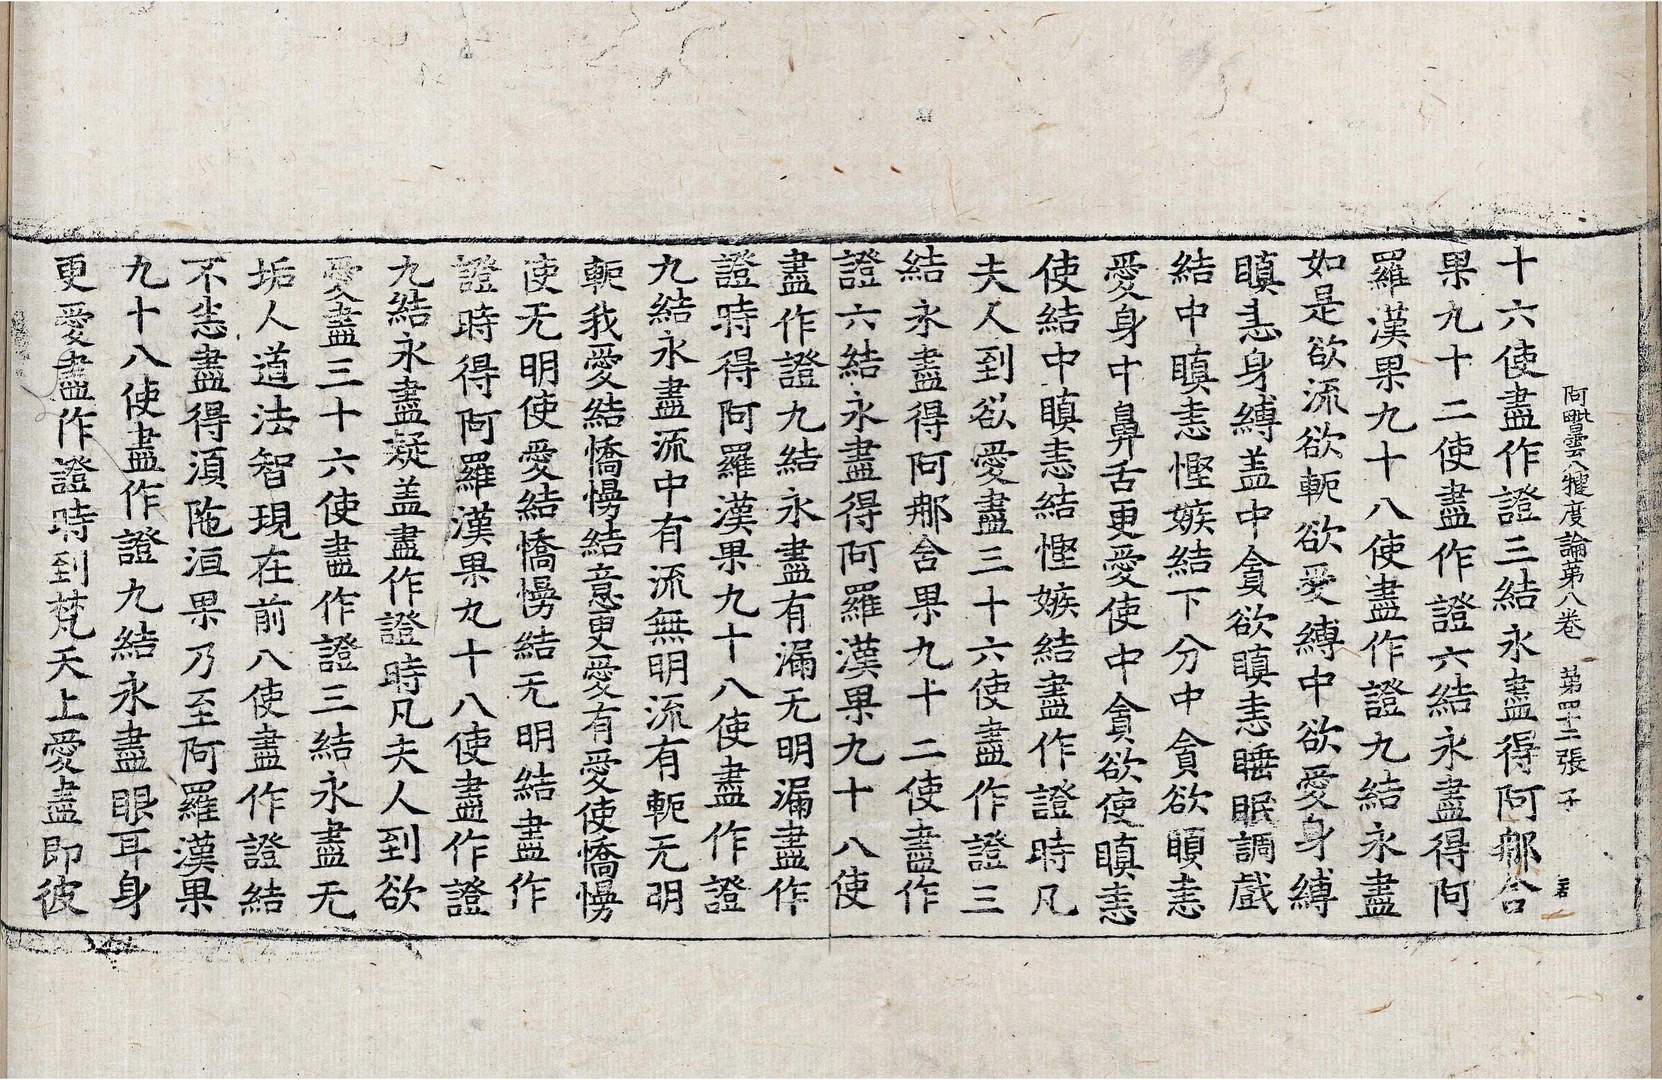 阿毗曇八犍度論第八卷 第四十二張 子
十六使盡作證三結永盡得阿那含
果九十二使盡作證六結永盡得阿
羅漢果九十八使盡作證九結永盡
如是欲流欲軛欲愛縛中欲愛身縛
瞋恚身縛盖中貪欲瞋恚睡眠調戲
結中瞋恚慳嫉結下分中貪欲瞋恚
愛身中鼻舌更愛使中貪欲使瞋恚
使結中瞋恚結慳嫉結盡作證時凡
夫人到欲愛盡三十六使盡作證三
結永盡得阿那含果九十二使盡作
證六結永盡得阿羅漢果九十八使
盡作證九結永盡有漏无明漏盡作
證時得阿羅漢果九十八使盡作證
九結永盡流中有流無明流有軛无明
軛我愛結憍慢結意更愛有愛使憍慢
使无明使愛結憍慢結无明結盡作
證時得阿羅漢果九十八使盡作證
九結永盡疑盖盡作證時凡夫人到欲
愛盡三十六使盡作證三結永盡无
垢人道法智現在前八使盡作證結
不恙盡得湏陁洹果乃至阿羅漢果
九十八使盡作證九結永盡眼耳身
更愛盡作證時到梵天上愛盡即彼